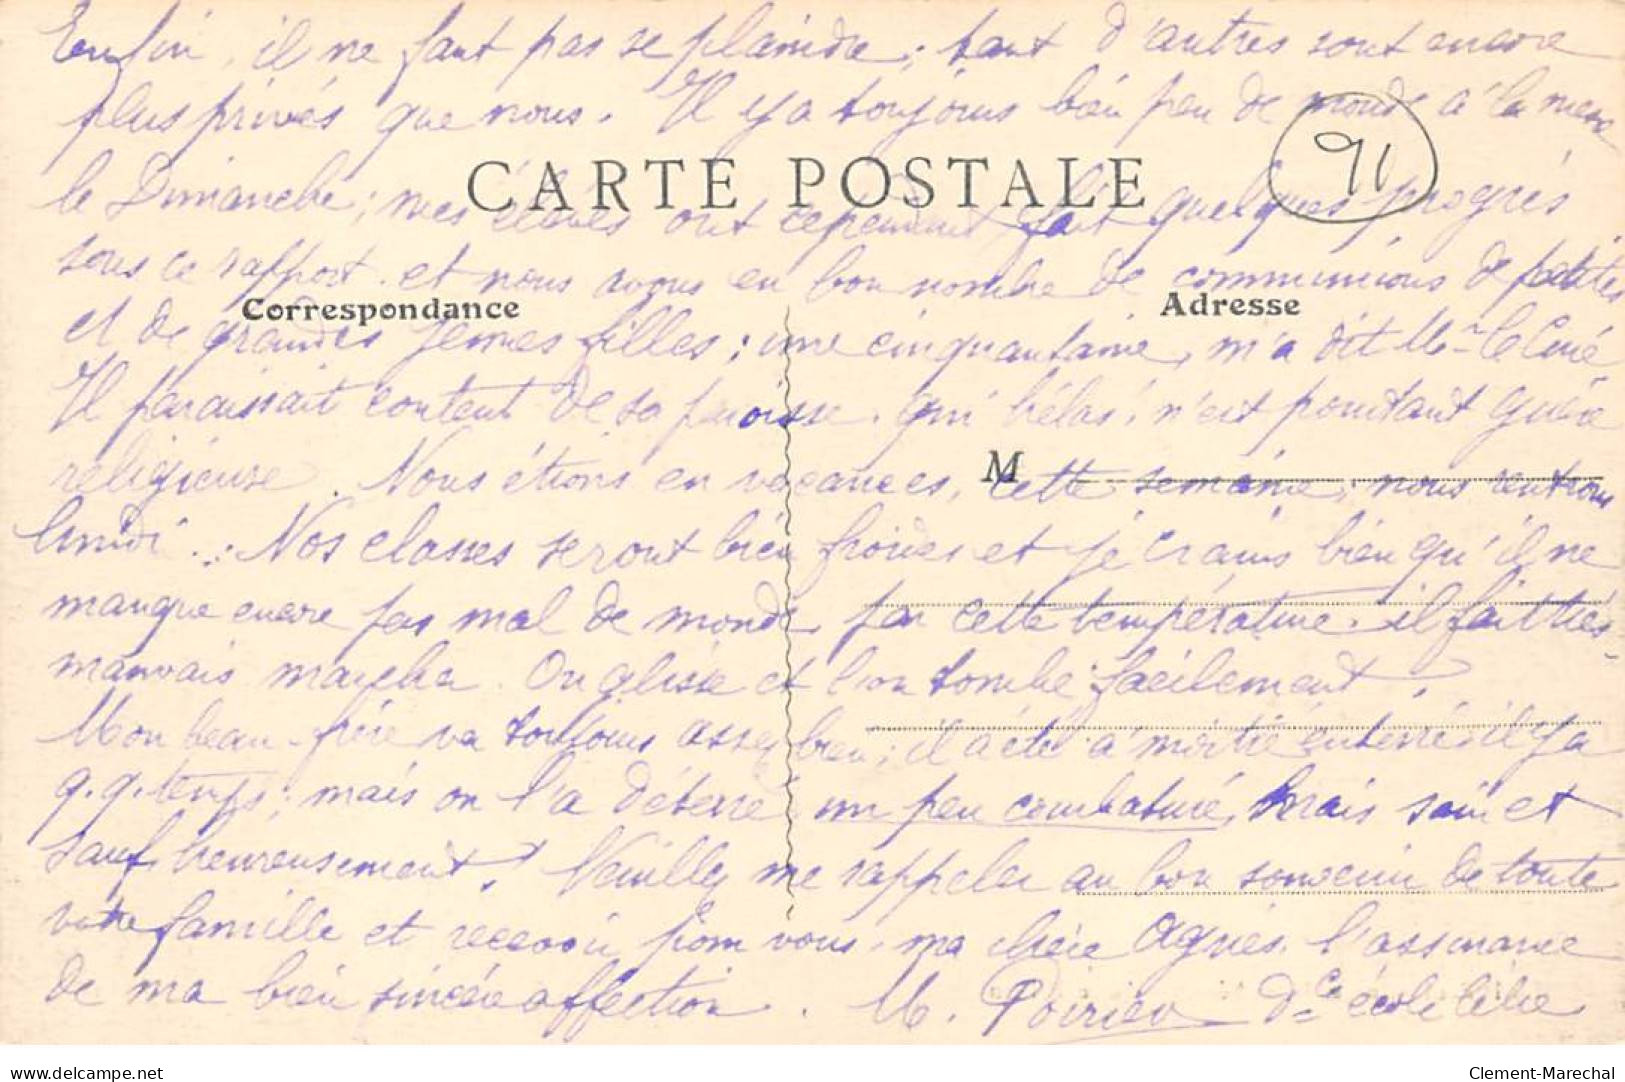 Enfin, il ne faut pas se plaindre ; tant d'autres sont encore
plus privés que nous. Il y a toujours bien peu de monde à la messe
91
CARTE POSTALE
le Dimanche ; mes élèves ont cependant fait quelques progrès
sous ce rapport. et nous avons eu bon nombre de communions de petites
Correspondance
Adresse
et de grandes jeunes filles ; une cinquantaine, m'a dit Mr le Curé
Il paraissait content de sa paroisse, qui hélas ! n'est pourtant guère
M
religieuse. Nous étions en vacances, cette semaine, nous rentrons
lundi. Nos classes seront bien froides et je crains bien qu'il ne
manque encore pas mal de monde, par cette température. il fait très
mauvais marcher. On glisse et l'on tombe facilement.
Mon beau-frère va toujours assez bien ; il a été à moitié enterré il y a
q.q. temps ; mais on l'a déterré un peu courbaturé, mais sain et
sauf, heureusement ! Veuillez me rappeler au bon souvenir de toute
votre famille et recevoir pour vous, ma chère Agnès, l'assurance
de ma bien sincère affection. M. Poirier Dce école libre
Clement-Marechal
delcampe.net